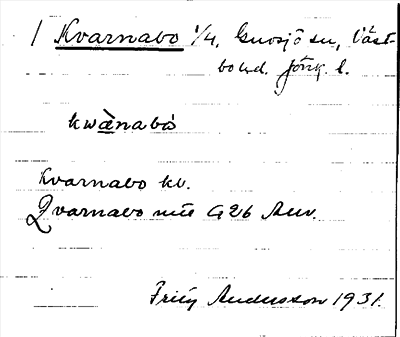 1 Kvarnabo 1/4, Gnosjö sn, Väst-
bo hd. Jönk. l.
kwànabò
Kvarnabo kv.
Qvarnabo 1926 Anv.
Fritz Andersson 1931.